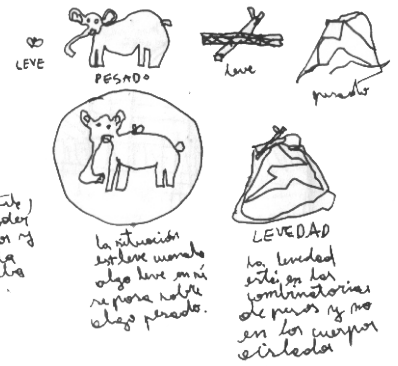 LEVE
PESADO
leve
pesado
la situación
es leve cuando
algo leve en sí
reposa sobre
algo pesado.
LEVEDAD
La levedad
está en las
combinatorias
de pesos y no
en los cuerpos
aislados